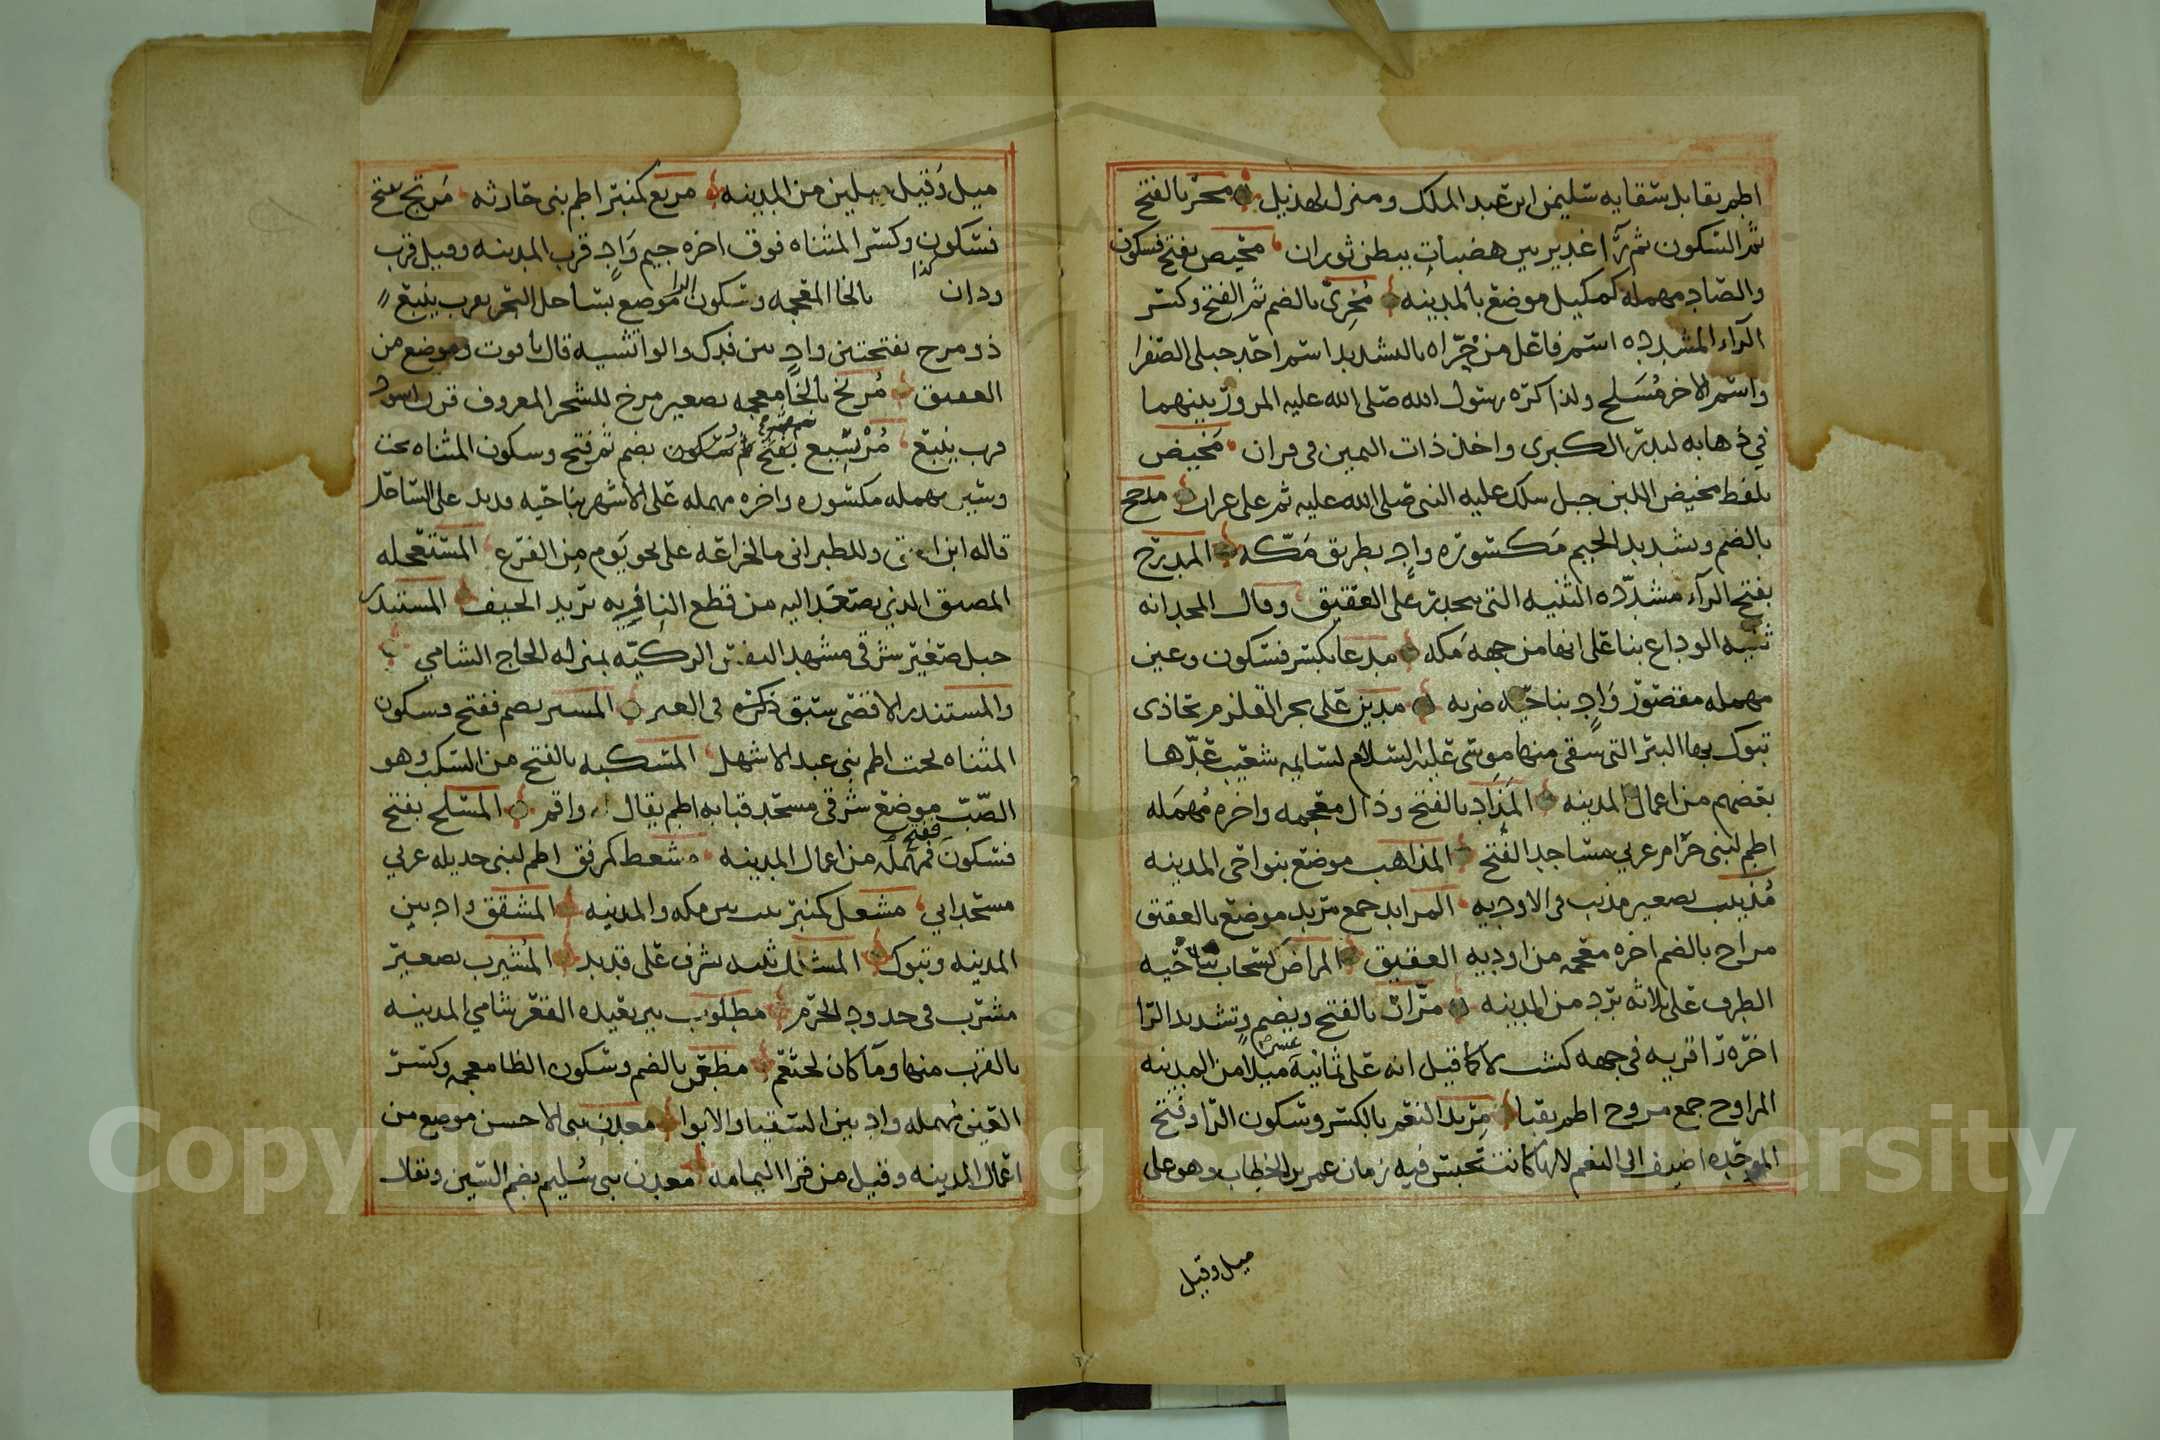 اطم يقابل سقايه سليمن ابن عبد الملك ومنزل لهذيل محر بالفتح
ثم السكون ثم رآ غدير بين هضبات ببطن ثوران محيص بفتح فسكون
والصاد مهمله كمكيل موضع بالمدينه مخرئ بالضم ثم الفتح وكسر
الرآء المشدده اسم فاعل من خرّاه بالتشديد اسم احد جبلى الصفرا
واسم الاخر مسلح ولذا كره رسول الله صلى الله عليه المرور بينهما
في ذهابه لبدر الكبرى واخذ ذات اليمين فى فران مخيض
بلفظ مخيض اللبن جبل سلك عليه النبى صلى الله عليه ثم على عراب مدجج
بالضم وتشديد الجيم مكسوره واد بطريق مكه المدرج
بفتح الرآء مشدده الثنيه التى يحدر على العقيق وقال المجد انه
ثنيه الوداع بنا على انها من جهه مكه مدعا بكسر فسكون وعين
مهمله مقصور واد بناحيه ضريه مدين على بحر القلزم تحاذى
تبوك بها البئر التى سقى منها موسى عليه السلام لسايمه شعيب عدها
بعضهم من اعمال المدينه المذاد بالفتح وذال معجمه واخره مهمله
اطم لبنى حرام عربي مساجد الفتح المذاهب موضع بنواحى المدينه
مذينب تصغير مذنب فى الاوديه المرابد جمع مربد موضع بالعقيق
مراح بالضم اخره معجمه من اوديه العقيق المراض كسحاب بناحيه
الطرف على ثلاثه برد من المدينه مرّان بالفتح ويضم وتشديد الرا
اخره نا قريه فى جهه كشب لا كما قيل انه على ثمانية عشر ميلا من المدينه
المراوح جمع مروح اطم بقبا مربد النعم بالكسر وسكون الرا وفتح
الموحده اضيف الى النعم لانها كانت تحبس فيه زمان عمر بن الخطاب وهو على
ميل وقيل
ميل وقيل ميلين من المدينه مربع كمنبر اطم بنى حارثه مرتج بفتح
فسكون وكسر المثناه فوق اخره جيم واد قرب المدينه وقيل قرب
ودان كذا بالخا المعجمه وسكون الرا موضع بساحل البحر بقرب ينبع
ذو مرح بفتحتين واد بين فدك والوابشيه قال ياقوت وموضع من
العقيق مريخ بالخا معجمه تصغير مرخ للشجر المعروف قرن اسود
قرب ينبع مريسيع بضم ثم فتح وسكون المثناه تحت
وسين مهمله مكسوره واخره مهمله على الاشهر بناحيه قديد على الساحل
قاله ابن اسحق وللطبرانى ما لخزاعه على نحو يوم من الفرع المستعجله
المضيق الذي يصعد اليه من قطع النازيه يريد الخيف المستندر
جبل صغير شرقى مشهد النفس الزكيه بمنزله الحاج الشامي
والمستندر الاقصى سبق ذكره فى العير المسير بضم ففتح وسكون
المثناه تحت اطم بنى عبد الاشهل المسكبه بالفتح من السكب وهو
الصب موضع شرقى مسجد قبا به اطم يقال له واقم المسلح بفتح
فسكون ففتح فمهمله من اعمال المدينه مشعط كمرفق اطم لبنى حديله عربي
مسجد ابي مشعل كمنبر بين مكه والمدينه المشقق واد بين
المدينه وتبوك المشلل ثنيه تشرف على قديد المشيرب تصغير
مشرب فى حدود الحرم مطلوب بير بعيده القعر شامي المدينه
بالقرب منها وما كان لخثعم مظعن بالضم وسكون الظا معجمه وكسر
العين مهمله واد بين السقيا والابوا معدن بنى الاحسن موضع من
اعمال المدينه وقيل من قرا اليمامه معدن بنى سليم بضم السين ونقلا
Copyright © King Saud University